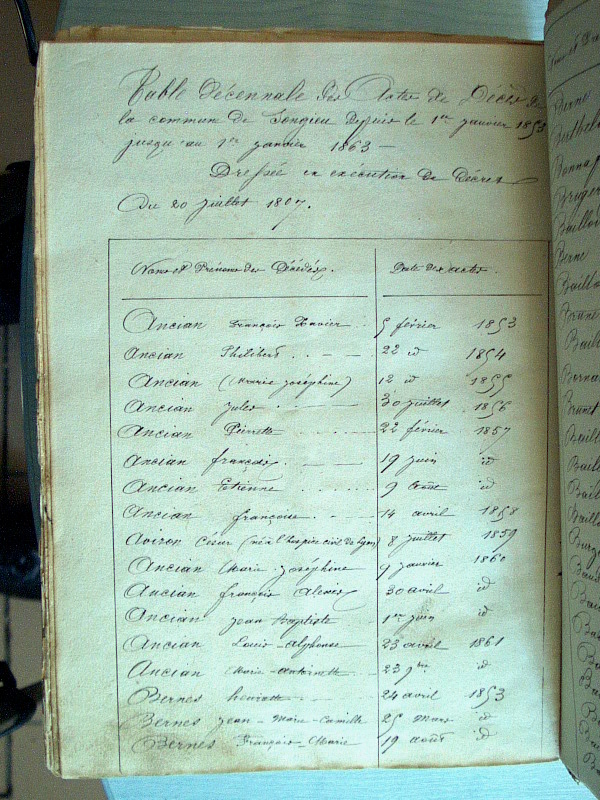 Table Décennale des Actes de Décès de
la commun de Songieu Depuis le 1er janvier 1853
jusqu'au 1er janvier 1863 —
Dressée en execution du Décret
Du 20 juillet 1807.
Noms et Prénoms des Décédés. Date des actes.
Ancian François Xavier 5 février 1853
Ancian Philibert 22 id 1854
Ancian (Marie Joséphine) 12 id 1855
Ancian jules 30 juillet 1856
Ancian Pierrette 22 février 1857
Ancian françois 19 juin id
Ancian Etienne 9 août id
Ancian françoise 14 avril 1858
Avison César (né à l'hospice civil de Lyon) 8 juillet 1859
Ancian Marie joséphine 9 janvier 1860
Ancian françois Alexis 30 avril id
Ancian jean Baptiste 1er juin id
Ancian Louis-alphonse 23 avril 1861
Ancian Marie-antoinette 23 9bre id
Bernes henriette 24 avril 1853
Bernes jean-Marie-Camille 25 mars id
Bernes François-Marie 19 août id